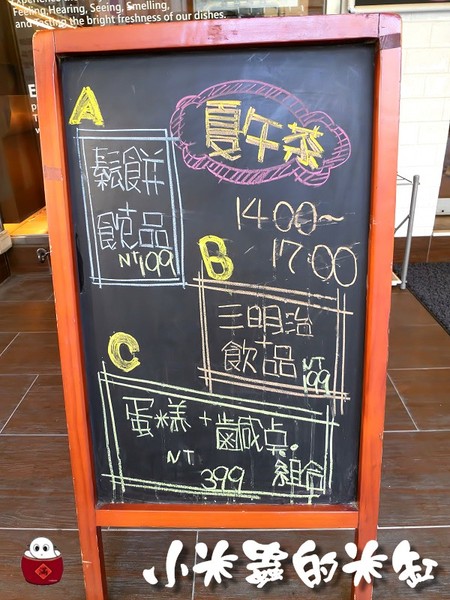 Feeling Hearing, Seeing, Smelling,
and Tasting the bright freshness of our dishes.
A
夏午茶
鬆餅
+
飲品
NT109
14:00~
17:00
B
三明治
+
飲品
NT
199
C
蛋糕+鹹点.
NT
399
組合
小米蟲的米缸